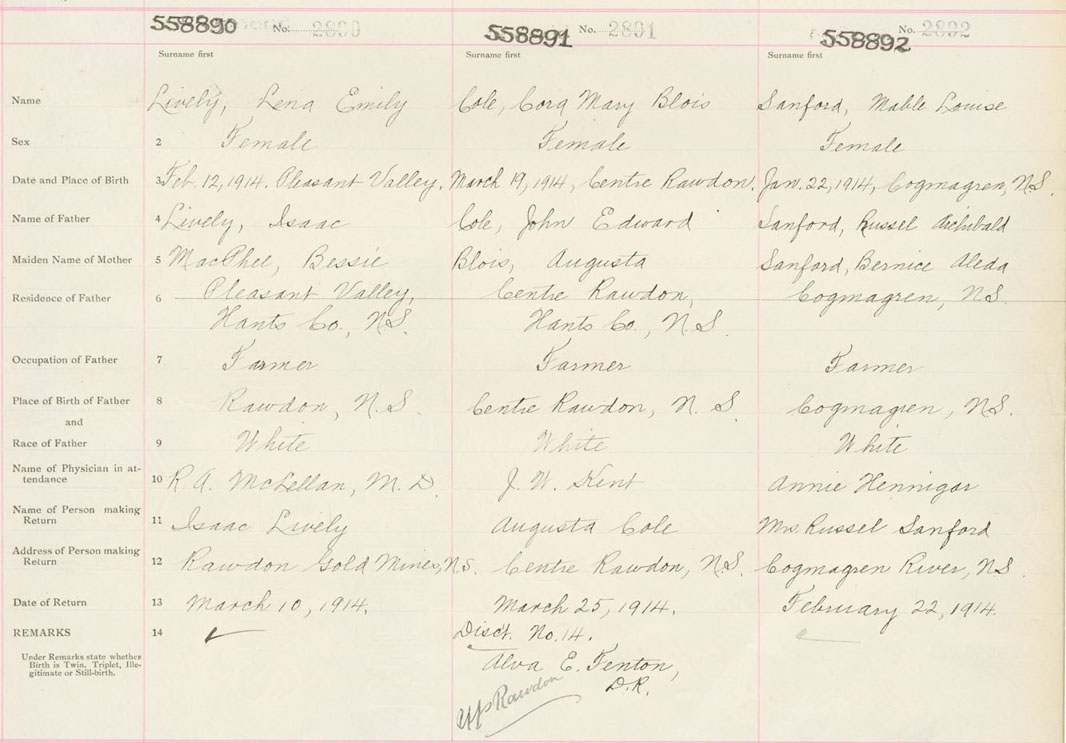 558890 No. 2890 558891 No. 2891 558892 No. 2892
Surname first Surname first Surname first
Name Lively, Lena Emily Cole, Cora Mary Blois Sanford, Mable Louise
Sex 2 Female Female Female
Date and Place of Birth 3 Feb. 12, 1914. Pleasant Valley. March 19, 1914, Centre Rawdon. Jan. 22, 1914, Cogmagren, N.S.
Name of Father 4 Lively, Isaac Cole, John Edward Sanford, Russel Archibald
Maiden Name of Mother 5 MacPhee, Bessie Blois, Augusta Sanford, Bernice Aleda
Residence of Father 6 Pleasant Valley, Centre Rawdon, Cogmagren, N.S.
Hants Co., N.S. Hants Co., N.S.
Occupation of Father 7 Farmer Farmer Farmer
Place of Birth of Father 8 Rawdon, N.S. Centre Rawdon, N.S. Cogmagren, N.S.
and
Race of Father 9 White White White
Name of Physician in at-
tendance 10 R. A. McLellan, M.D. J. W. Kent Annie Hennigar
Name of Person making
Return 11 Isaac Lively Augusta Cole Mrs. Russel Sanford
Address of Person making
Return 12 Rawdon Gold Mines, N.S. Centre Rawdon, N.S. Cogmagren River, N.S.
Date of Return 13 March 10, 1914. March 25, 1914. February 22, 1914.
REMARKS 14 Disct. No. 14.
Under Remarks state whether
Birth is Twin, Triplet, Ille-
gitimate or Still-birth.
Alva E. Fenton,
D.R.
Rawdon